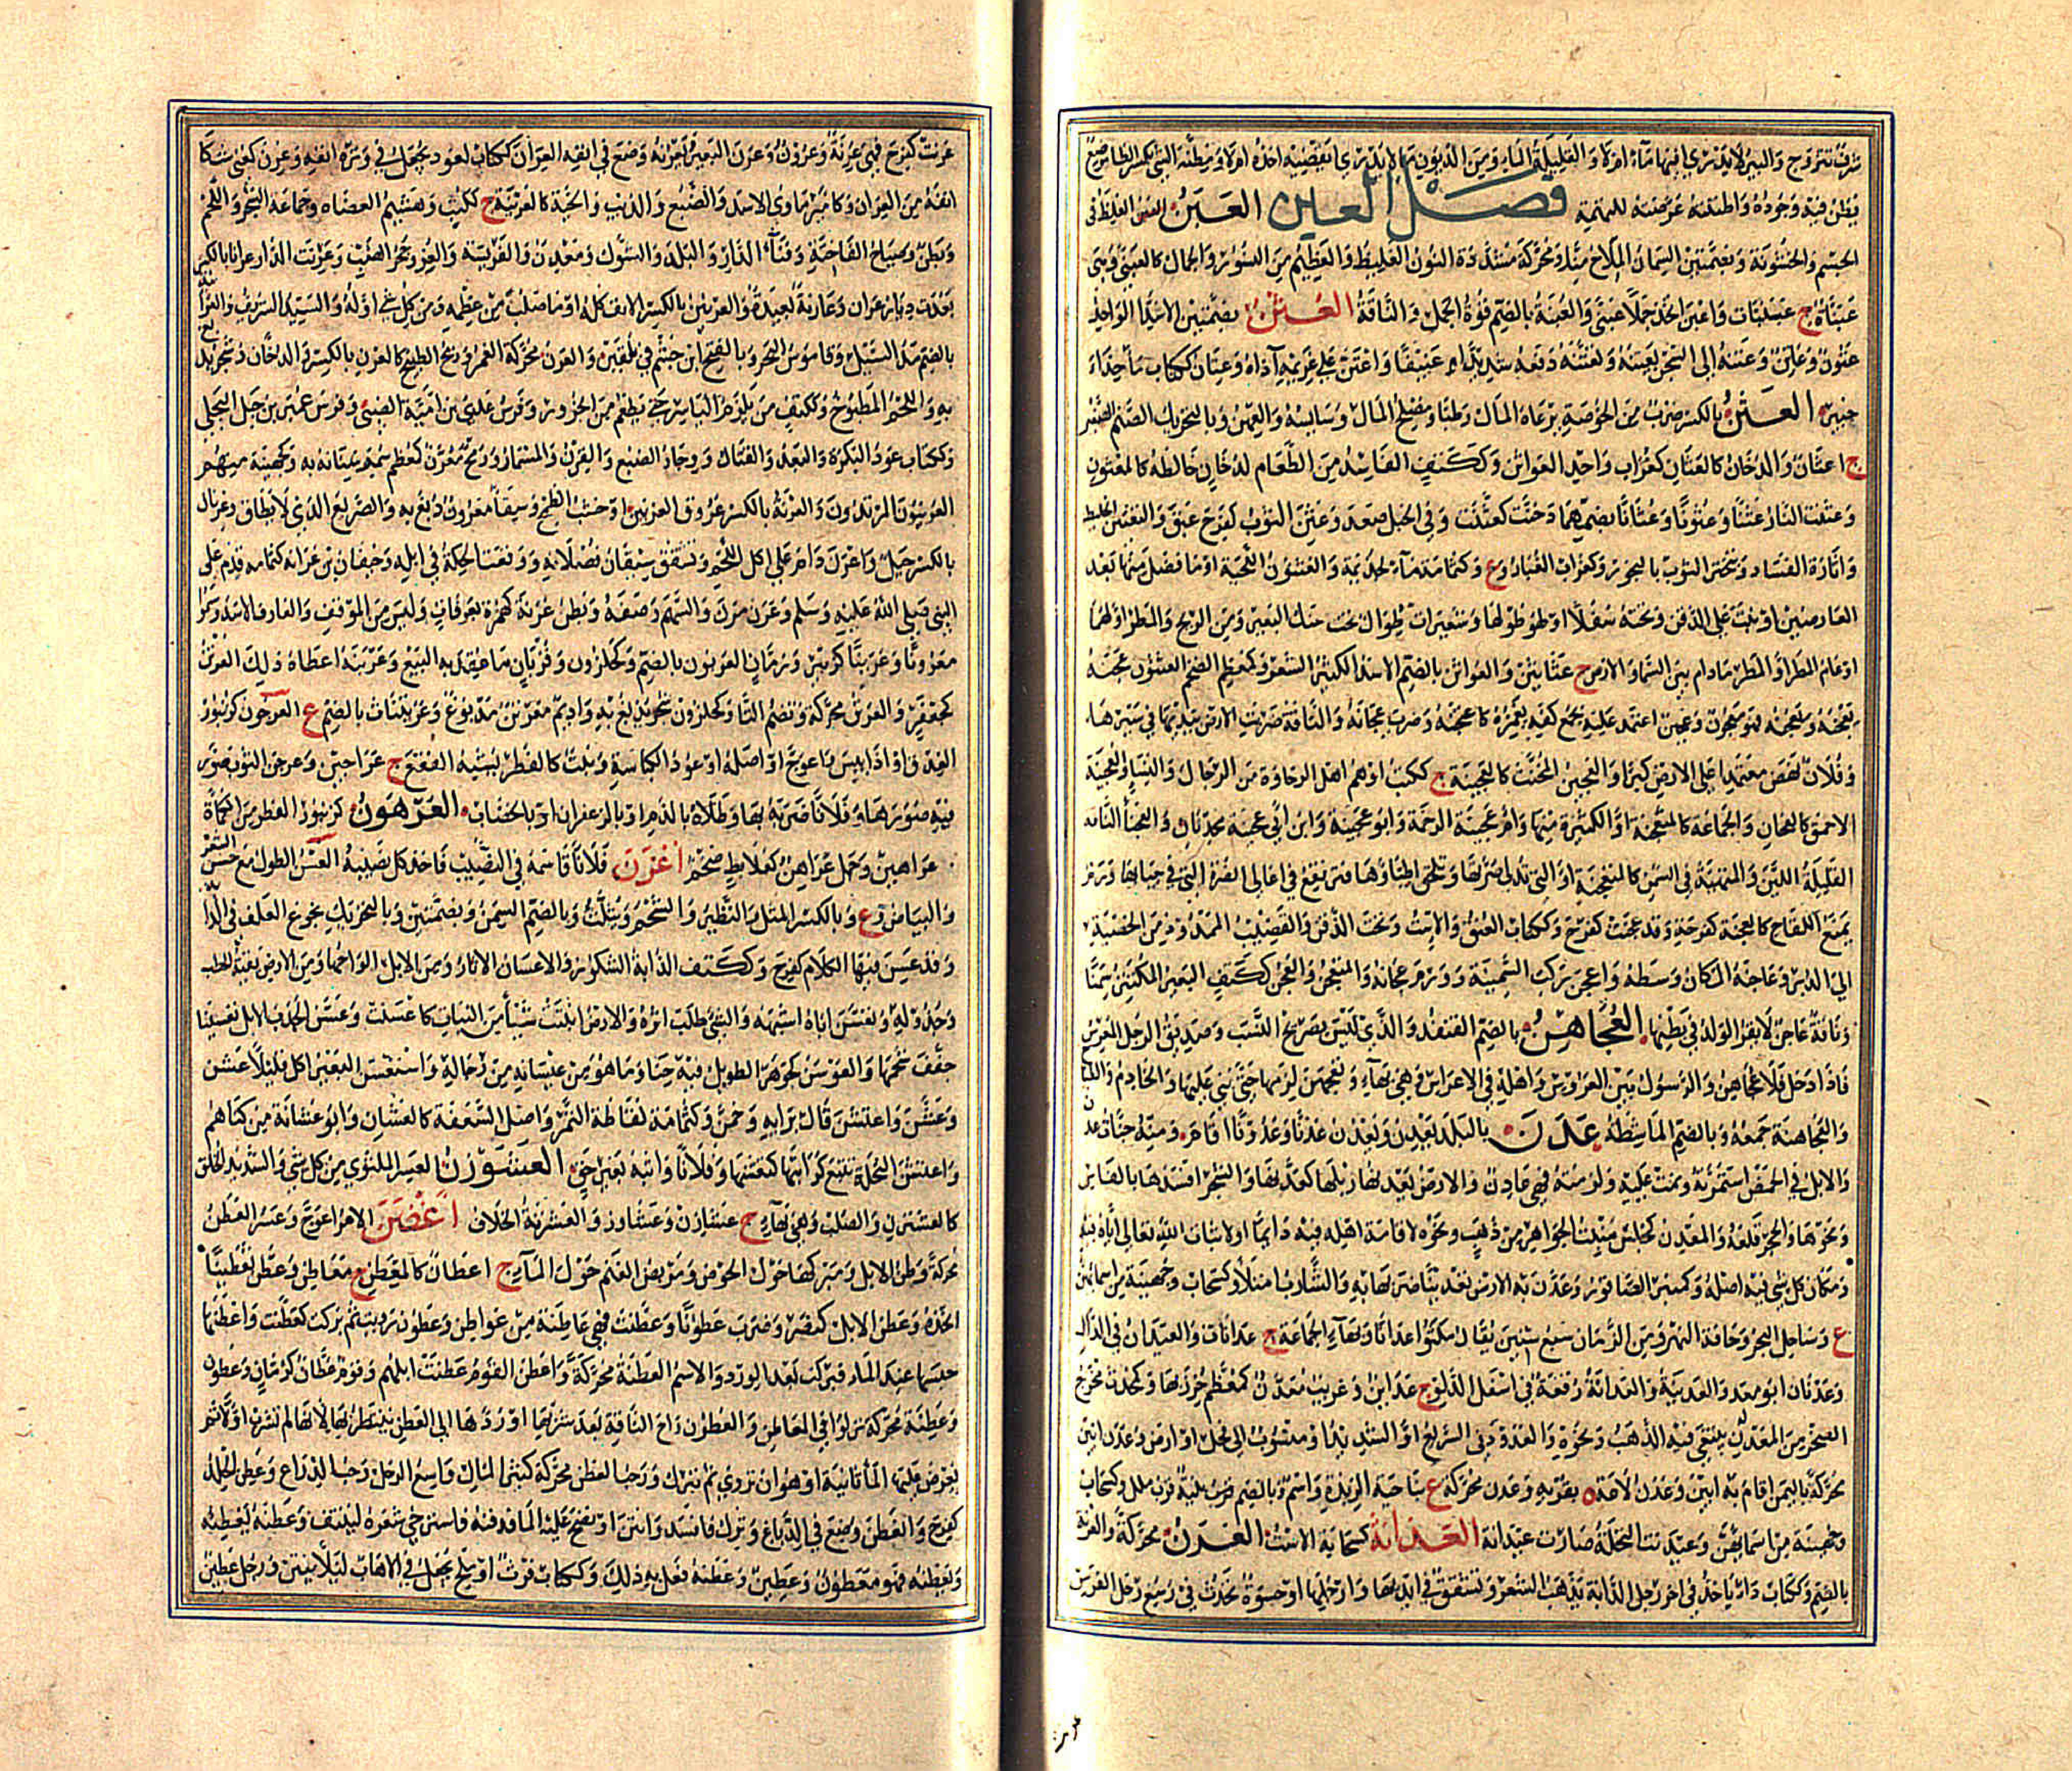 تتزوج والبئر لا يدرى افيها ماء ام لا والقليلة الماء ومن الديون ما لا يدرى ايقضيه اخذه ام لا ومظنة الشئ بكسر الظاء موضع
يظن فيه وجوده واظننته عرضته للتهمة فصل العين العبن الغلظ في
الجسم والخشونة وبضمتين السمان الملاح منا ومحركة مشددة النون الغليظ والعظيم من النسور والجمال كالعبنى وهي
عبناة ج عبنيات واعبن اتخذ جملا عبنى والعبنة بالضم قوة الجمل والناقة العتن بضمتين الاشداء الواحد
عتون وعاتن وعتنه الى السجن يعتنه ويعتنه دفعه شديدا عنيفا واعتن على غريمه آذاه وعتان ككتاب ماء حذاء
خبير العثن بالكسر ضرب من الخوصة يرعاه المال رطبا ومصلح المال وسايسه والعهن وبالتحريك الصنم الصغير
ج اعثان والدخان كالعثان كغراب واحد العواثن وككتف الفاسد من الطعام لدخان خالطه كالمعثون
وعثنت النار عثنا وعثونا وعثانا بضمهما دخنت كعثنت وفي الجبل صعد وعثن الثوب كفرح عبق والتعثين التخليط
واثارة الفساد وتبخير الثوب بالبخور وكغراب الغبار وع وكثمامة ماء لجذيمة والعثنون اللحية او ما فضل منها بعد
العارضين او نبت على الذقن وتحته سفلا او طولها وشعيرات طوال تحت حنك البعير ومن الريح والمطر اولهما
او عام المطر او المطر ما دام بين السماء والارض ج عثانين والعواثن بالضم الاسد الكثير الشعر وكمعظم الضخم العثنون عجنه
يعجنه ويعجنه فهو معجون وعجين اعتمد عليه بجمع كفه يغمزه كاعتجنه وضرب عجانه والناقة ضربت الارض بيديها في سيرها
وفلان نهض معتمدا على الارض كبرا والعجين المخنث كالعجينة ج ككتب او هم اهل الرخاوة من الرجال والنساء والعجينة
الاحمق كالعجان والجماعة كالمتعجنة او الكثيرة منها وام عجينة الرخمة وابو عجينة وابن ابي عجينة محدثان والعجناء الناقة
القليلة اللبن والمنتهية في السمن كالمتعجنة او التي تدلى ضرتها وتلحق اطباؤها فترتفع في اعالي الضرة التي في حيائها ورم
يمنع اللقاح كالعجنة كفرحة وقد عجنت كفرح وككتاب العنق والاست وتحت الذقن والقضيب الممدود من الخصية
الى الدبر وعاجنة المكان وسطه واعجن ركب السمينة وورم عجانه والمتعجن والعجن ككتف البعير المكتنز سمنا
وناقة عاجن لا يقر الولد في بطنها العجاهن بالضم القنفذ والذي ليس بصريح النسب وصديق الرجل المعرس
فاذا دخل فلا عجاهن والرسول بين العروس واهله في الاعراس وهي بهاء وتعجهن لزمها حتى بنى عليها والخادم والطباخ
والعجاهنة جمعه وبالضم الماشطة عدن بالبلد يعدن ويعدن عدنا وعدونا اقام ومنه جنات عدن
والابل في الحمض استمرأته ونمت عليه ولزمته فهي عادن والارض يعدنها زبلها كعدنها والشجر افسدها بالفاس
ونحوها والحجر قلعه والمعدن كمجلس منبت الجواهر من ذهب ونحوه لاقامة اهله فيه دائما او لاثبات الله تعالى اياه فيه
ومكان كل شئ فيه اصله وكمنبر الصاقور وعدن به الارض تعدينا ضربها به والشارب امتلأ وكسحاب وجهينة من اسمائهن
ع وساحل البحر وحافة النهر ومن الزمان سبع سنين يقال مكثوا عدانا وبهاء الجماعة ج عدانات والعيدان في الدال
وعدنان ابو معد والعدينة والعدانة رقعة في اسفل الدلو ج عدائن وغرب معدن كمعظم خرز بها وكمحدث مخرج
الصخر من المعدن يبتغي فيه الذهب ونحوه والعدودني السريع او الشديد منسوب الى فحل او ارض وعدن ابين
محركة باليمن اقام به ابين وعدن لاعة بقربه وعدن محركة ع بناحية الربذة واسم وبالضم فرب ملل وكسحاب
وجهينة من اسمائهن وعيدنت النخلة صارت عيدانة العذانة كسحابة الاست العرن محركة والعرنة
بالضم وككتاب داء ياخذ في اخر رجل الدابة يذهب الشعر وتشقق في ايديها وارجلها او جسوة تحدث في رسغ رجل الفرس
عرنت كفرح فهي عرنة وعرون وعرن البعير يعرنه وضع في انفه العران ككتاب لعود يجعل في وترة انفه وعرن كعنى شكا
انفه من العران وكامير ماوى الاسد والضبع والذئب والحية كالعرينة ج ككتب وهشيم العضاه وجماعة الشجر واللحم
وبطن وصياح الفاختة وفناء الدار والبلد والشوك ومعدن والقرية والعز ونحر الضب وعرنت الدار عرانا بالكسر
بعدت وديار عران وعارنة بعيدة والعرنين بالكسر الانف كله او ما صلب من عظمه ومن كل شئ اوله والسيد الشريف
بالضم مد السيل وقاموس البحر وبالفتح ابن جشم في بلقين والعرن محركة الغمر وريح الطبيخ كالعرن بالكسر والدخان وشجر يدبغ
به واللحم المطبوخ وككتف من يلزم الياسر حتى يطعم من الجزور وفرس عدي بن امية الضبي وفرس عمير بن جبل البجلي
وككتاب عود البكرة والبعد والقتال ووجار الضبع والقرن والمسمار ورمح معرن كمعظم سمر سنانه به وكجهينة منهم
العرنيون المرتدون والعرنة بالكسر عروق العرتن او خشب الظمخ وسقاء معرون دبغ به والصريع الذي لا يطاق وعرنان
بالكسر جبل واعرن دام على اكل اللحم وتشقق سيقان فصلانه ووقعت الحكة في ابله وخيفان بن عرانة كثمامة قدم على
النبي صلى الله عليه وسلم وعرن مرن والسهم رصفه وبطن عرنة كهمزة بعرفات وليس من الموقف والعارف الاسد وسموا
معرونا وعرينا كزبير ورمان العربون بالضم وكحلزون وقربان ما عقد به البيع وعربنه اعطاه ذلك العرتن
كجعفر والعرتن محركة وتضم التاء وكحلزون شجر يدبغ به واديم معرتن مدبوغ وعريتنات بالضم ع العرجون كزنبور
العذق او اذا يبس واعوج او اصله او عود الكباسة ونبت كالفطر يشبه الفقع ج عراجين وعرجن الثوب صور
فيه صورها وفلانا ضربه بها وطلاه بالدم او بالزعفران او بالخضاب العرهون كزنبور الفطر من الكمأة
عراهين وجمل عراهن كعلابط ضخم اعزن فلانا قاسمه في النصيب فاخذ كل نصيبه العسن الطول مع حسن الشعر
والبياض وع وبالكسر المثل والنظير والشحم ويثلث وبالضم السمن وبضمتين وبالتحريك نجوع العلف في الدابة
وقد عسن فيها الكلأ كفرح وككتف الدابة الشكور والاعسان الاثار ومن الابل الواحها ومن الارض بقية الحلب
وتعسن اباه اشبهه والشئ طلب اثره والارض انبتت شيئا من النبات كاعسنت وعسن الجدب الابل تعسينا
خفف شحمها والعوسن كجوهر الطويل فيه جنا وما هو من عيسانه من رجاله واستعسن البعير اكل قليلا عشن
وعشن واعتشن قال برايه وخمن وكثمامة لقاطة التمر واصل السعفة كالعشان وابو عشانة من كناهم
واعتشن النخلة تتبع كرابتها كتعشنها وفلانا واثبه بغير حق العشوزن العسر الملتوي من كل شئ والشديد الخلق
كالعشنزن والصلب وهي بهاء ج عشازن وعشاوز والعشزنة الخلاف اعصن الامر اعوج وعسر العطن
محركة وطن الابل ومبركها حول الحوض ومربض الغنم حول الماء ج اعطان كالمعطن ج معاطن وعطن تعطينا
اتخذه وعطن الابل كنصر وضرب عطونا وعطنت فهي عاطنة من عواطن وعطون رويت ثم بركت كعطنت واعطنها
حبسها عند الماء فبركت بعد الورود والاسم العطنة محركة واعطن القوم عطنت ابلهم وقوم عطان كرمان وعطون
وعطنة محركة نزلوا في المعاطن والعطون راح الناقة بعد شربها او ردها الى العطن ينتظر بها لانها لم تشرب اولا ثم
يعرض عليها الماء ثانية او هو ان تروى ثم تترك ورحب العطن محركة كثير المال واسع الرحل رحب الذراع وعطن الجلد
كفرح وانعطن وضع في الدباغ وترك فافسد وانتن او نضح عليه الماء فدفنه فاسترخى شعره لينتف وعطنه يعطنه
ويعطنه فهو معطون وعطين وعطنه فعل به ذلك وككتاب فرث او ملح يجعل في الاهاب لئلا ينتن ورجل عطين